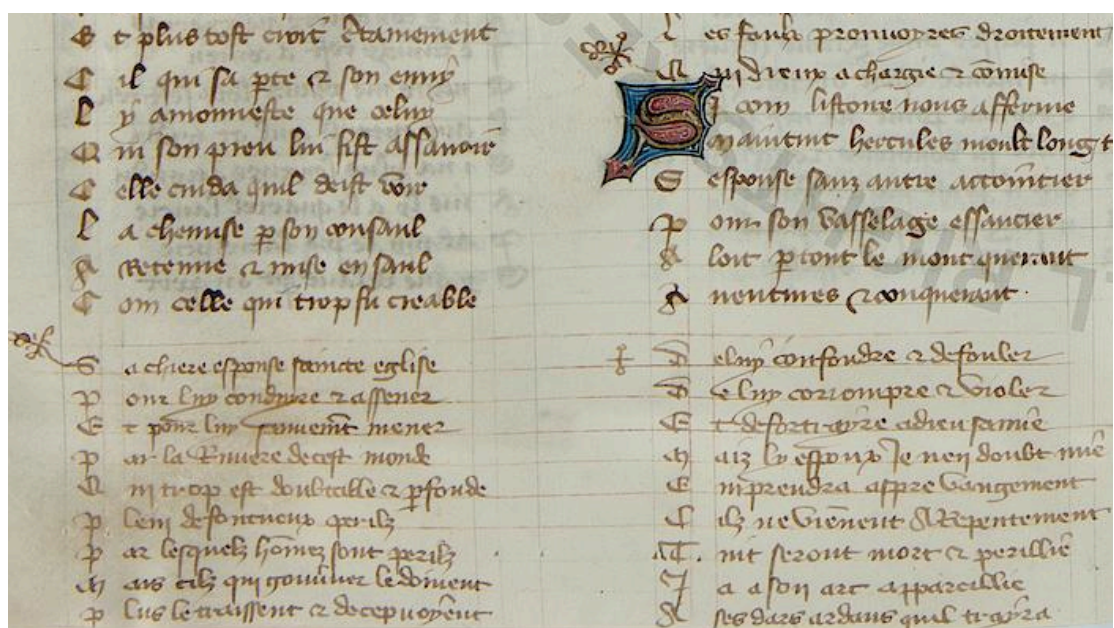 E t plus tost croit c̃tainement
C il qui sa ꝑte & son ennuy
L y amonneste que celuy
Q ui son preu lui fist assauoir
C elle cuida quil deist voir
L a chemise ꝑ son consaul
A Retenue & mise en saul
C om celle qui trop fu creable
S a chiere espouse saincte eglise
P our luy conduyre & assener
E t pour luy mener
P ar la Riuiere de cest monde
Q ui trop est doubtable & ꝑfonde
P lein de perilz
P ar lesquelz hõmez sont perilz
M ais cilz qui gouũner le doiuent
P lus le traissent & decepuoyẽt
L es faulx prouuoyres droitement
Q ui dieux a chargie & cõmise
S i com listoire nous afferme
M aintint hercules moult long t
S espouse sanz autre accointier
P our son vasselage essaucier
A loit ꝑ tout le mont querant
A uentures & conquerant
D e luy confondre & defouler
D e luy corrompre & violer
E t de fortrayre a dieu samie
M aiz ly espoux Je nen doubt mie
E n prendra aspre vangement
C ilz ne vienent A Repentement
T uit seront mort & perillie
J a a son arc appareillie
A ses dars ardans quil trayra